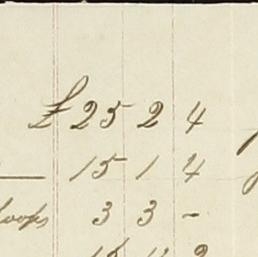 £ 25 2 4
15 1 4
loops 3 3 -